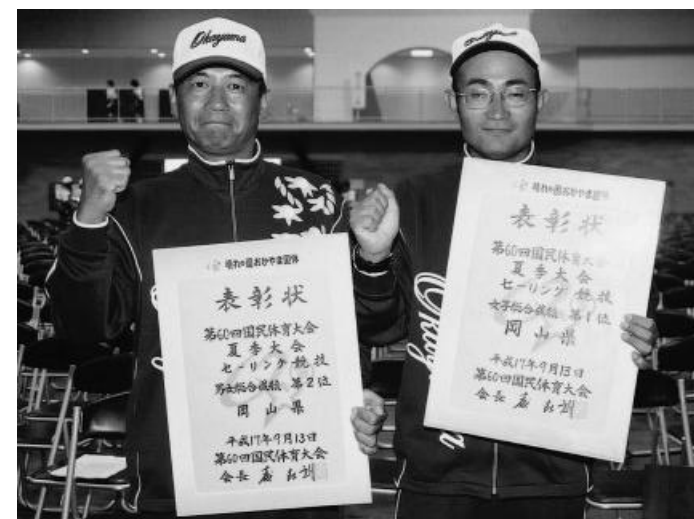 Okayama
Okayama
晴れの国おかやま国体
表彰状
第60回国民体育大会
夏季大会
セーリング競技
男女総合成績 第2位
岡山県
平成17年9月13日
第60回国民体育大会
会長
晴れの国おかやま国体
表彰状
第60回国民体育大会
夏季大会
セーリング競技
女子総合成績 第1位
岡山県
平成17年9月13日
第60回国民体育大会
会長